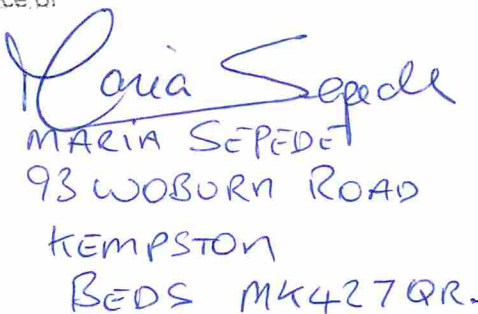 ce of
Maria Sepede
MARIA SEPEDE
93 WOBURN ROAD
KEMPSTON
BEDS MK427QR.